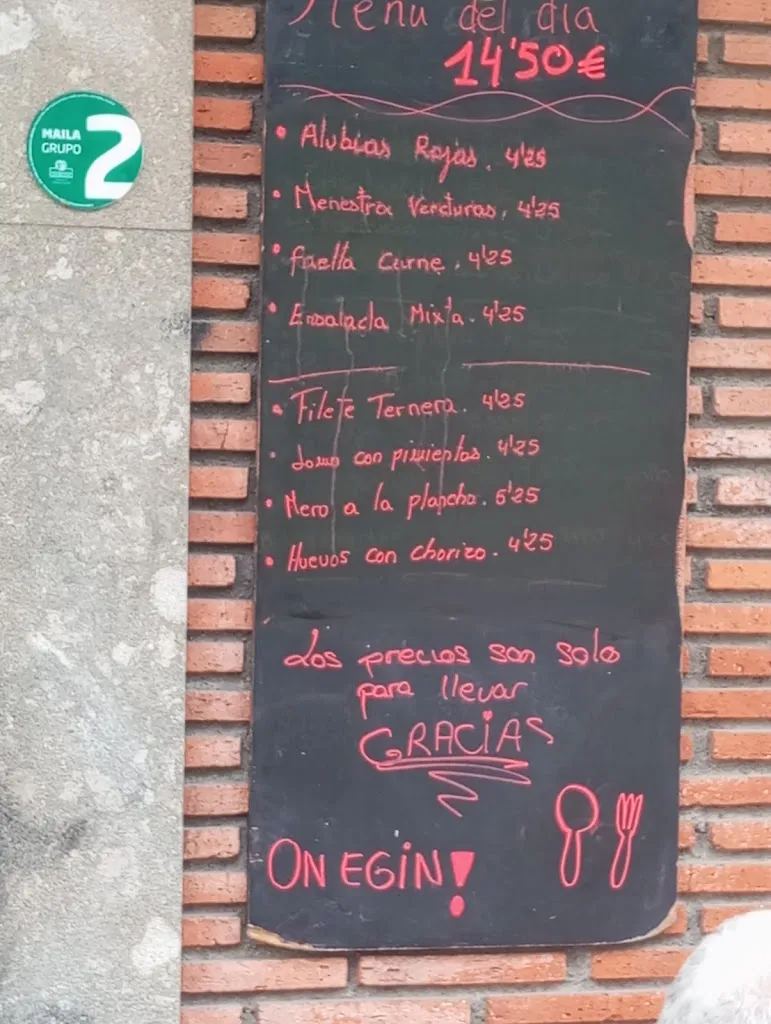 Menu del dia
14'50€
• Alubias Rojas. 4'25
• Menestra Verduras. 4'25
• Paella Carne. 4'25
• Ensalada Mixta. 4'25
• Filete Ternera. 4'25
• Lomo con pimientos. 4'25
• Mero a la plancha. 6'25
• Huevos con chorizo. 4'25
Los precios son solo
para llevar
GRACIAS
ON EGIN!
MAILA
GRUPO
2